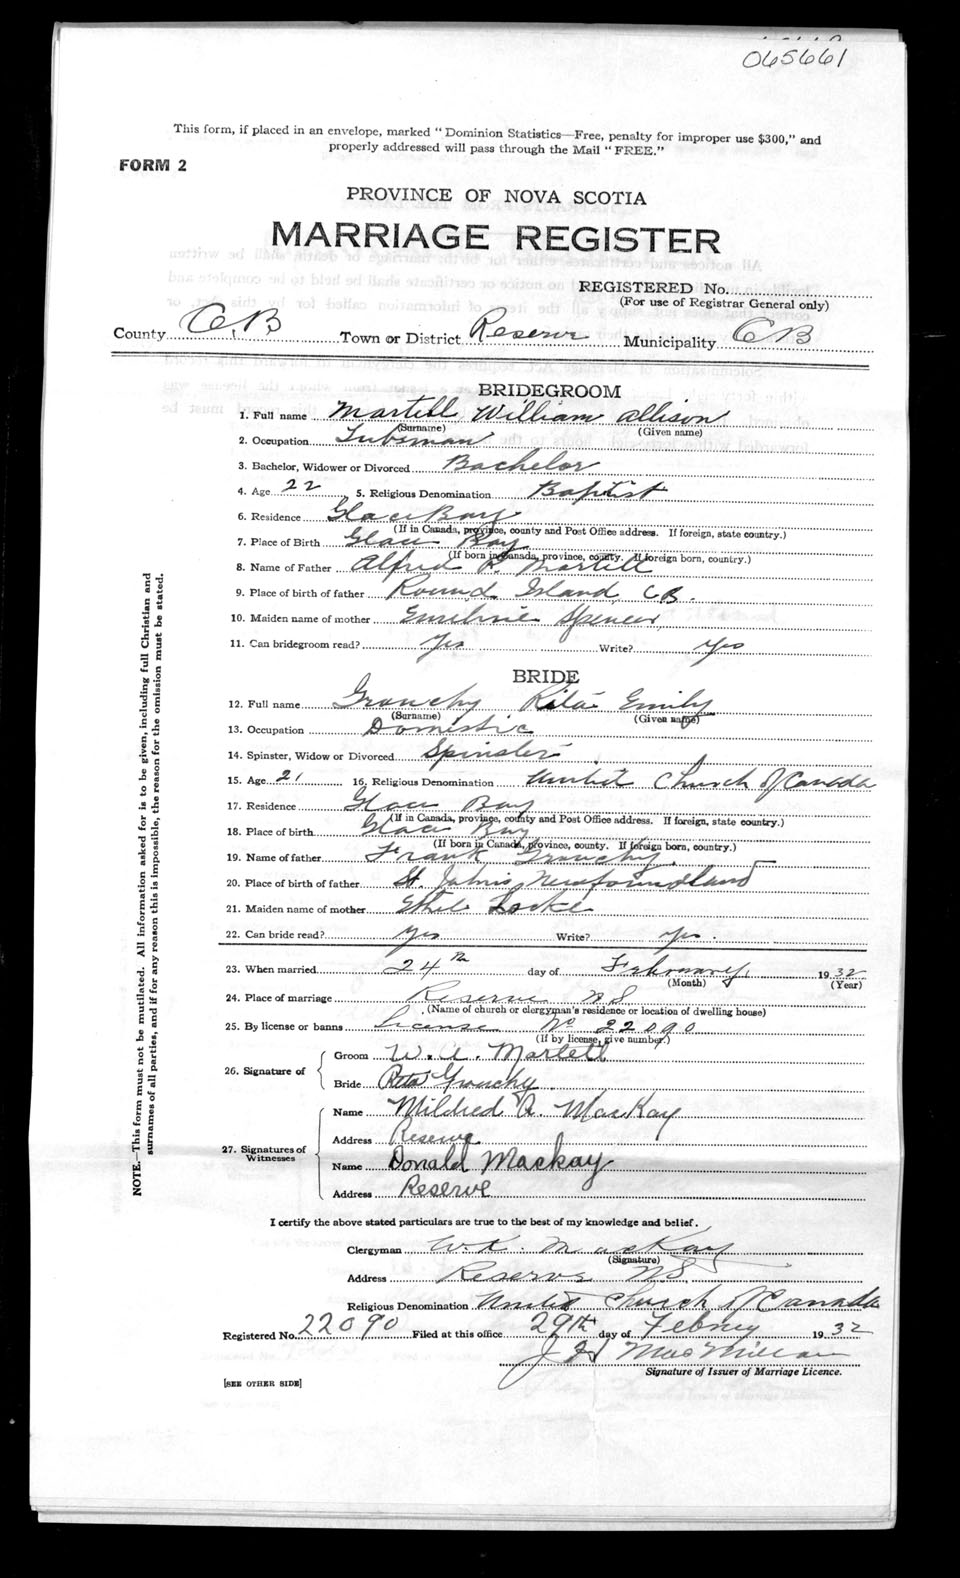 065661
This form, if placed in an envelope, marked "Dominion Statistics—Free, penalty for improper use $300," and
properly addressed will pass through the Mail "FREE."
FORM 2
PROVINCE OF NOVA SCOTIA
MARRIAGE REGISTER
REGISTERED No.
(For use of Registrar General only)
County C.B. Town or District Reserve Municipality CB
BRIDEGROOM
1. Full name Martell William Allison
(Surname) (Given name)
2. Occupation Tubeman
3. Bachelor, Widower or Divorced Bachelor
4. Age 22 5. Religious Denomination Baptist
6. Residence Glace Bay
(If in Canada, province, county and Post Office address. If foreign, state country.)
7. Place of Birth Glace Bay
(If born in Canada, province, county. If foreign born, country.)
8. Name of Father Alfred R. Martell
9. Place of birth of father Round Island, CB.
10. Maiden name of mother Emiline Spencer
11. Can bridegroom read? Yes Write? yes
BRIDE
12. Full name Grouchy Rita Emily
(Surname) (Given name)
13. Occupation Domistic
14. Spinster, Widow or Divorced Spinster
15. Age 21 16. Religious Denomination United Church of Canada
17. Residence Glace Bay
(If in Canada, province, county and Post Office address. If foreign, state country.)
18. Place of birth Glace Bay
(If born in Canada, province, county. If foreign born, country.)
19. Name of father Frank Grouchy
20. Place of birth of father St. John's Newfoundland
21. Maiden name of mother Ethel Locke
22. Can bride read? yes Write? yes.
23. When married 24th day of February, 1932
(Month) (Year)
24. Place of marriage Reserve NS
(Name of church or clergyman's residence or location of dwelling house)
25. By license or banns License No 22090
(If by license, give number.)
26. Signature of
Groom W. A. Martell
Bride Rita Grouchy
27. Signatures of Witnesses
Name Mildred A. MacKay
Address Reserve
Name Donald Mackay
Address Reserve
I certify the above stated particulars are true to the best of my knowledge and belief.
Clergyman W.X. MacKay
(Signature)
Address Reserve NS
Religious Denomination United Church of Canada
Registered No. 22090 Filed at this office 29th day of Febury 1932
J H MacMillan
Signature of Issuer of Marriage Licence.
[SEE OTHER SIDE]
NOTE.—This form must not be mutilated. All information asked for is to be given, including full Christian and
surnames of all parties, and if for any reason this is impossible, the reason for the omission must be stated.